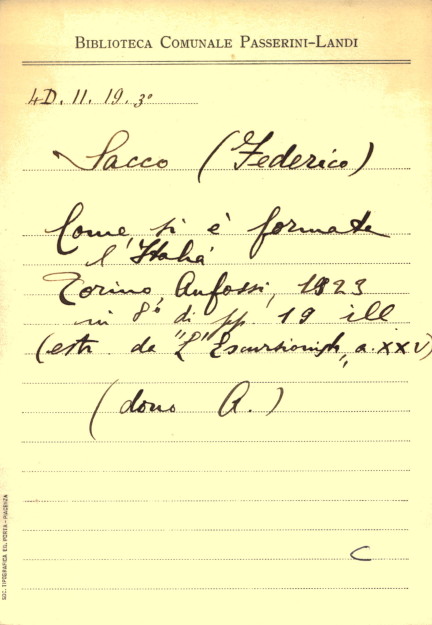 BIBLIOTECA COMUNALE PASSERINI-LANDI
4D. II. 19. 3°
Sacco (Federico)
Come si è formata
l'Italia
Torino Anfossi, 1923
in 8° di pp. 19 ill
(estr. da "L'Escursionista", a. XXV)
(dono A.)
C
SOC. TIPOGRAFICA ED. PORTA - PIACENZA